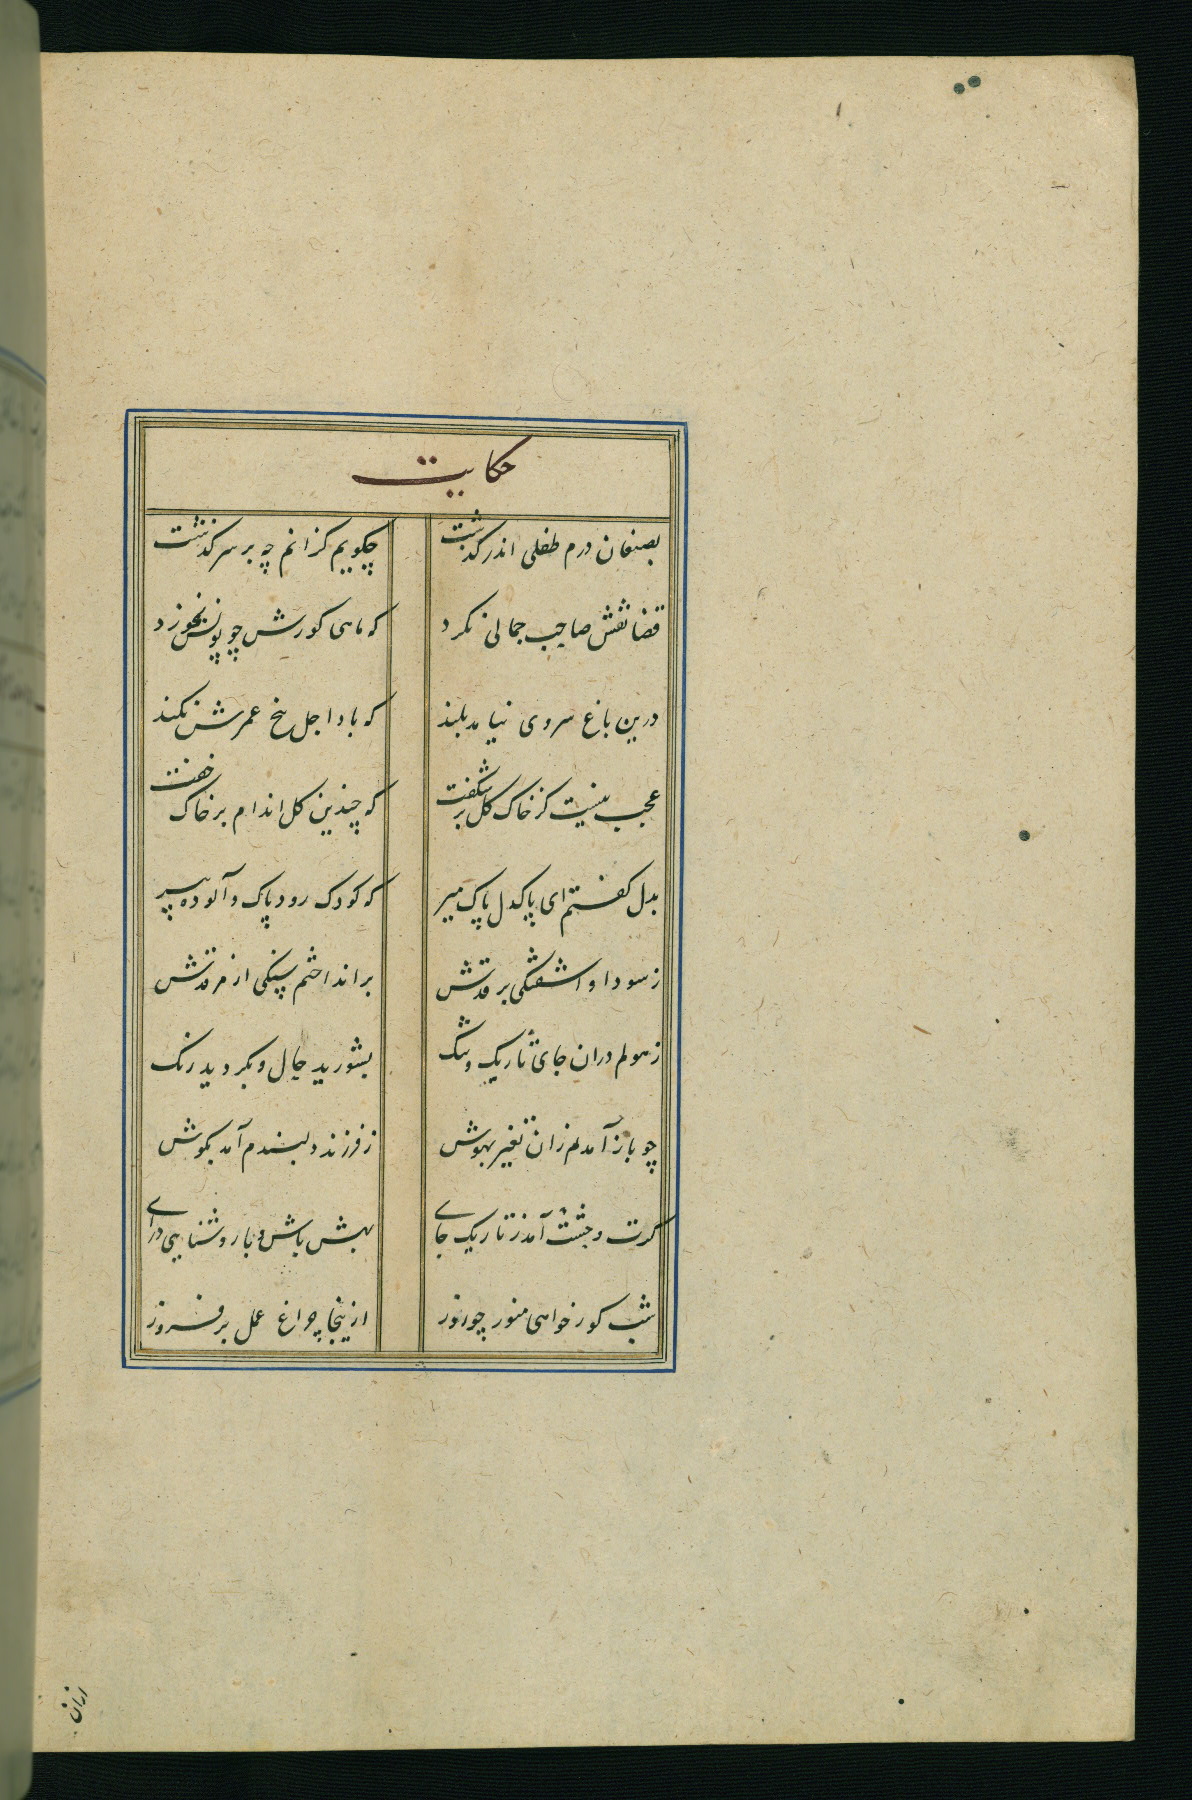 حکایت
بصنعان درم طفلی اندر گذشت چگویم کزانم چه بر سر گذشت
قضا نقش صاحب جمالی نکرد که ماهی گورش چو یونس نخورد
درین باغ سروی نیامد بلند که باد اجل بیخ عمرش نکند
عجب نیست کز خاک گل بر شگفت که چندین گل اندام بر خاک خفت
بدل گفتم ای پاکدل پاک میر که کودک رود پاک و آلوده پیر
ز سودا و آشفتگی بر قدش بر انداختم سنگی از مرقدش
ز هولم دران جای تاریک و تنگ بشورید حال و بگردید رنگ
چو باز آمدم زان تغیر بهوش ز فرزند دلبندم آمد بگوش
گرت وحشت آمد ز تاریک جای بهش باش و با روشنایی درای
شب گور خواهی منور چو روز ازینجا چراغ عمل بر فروز
ازان